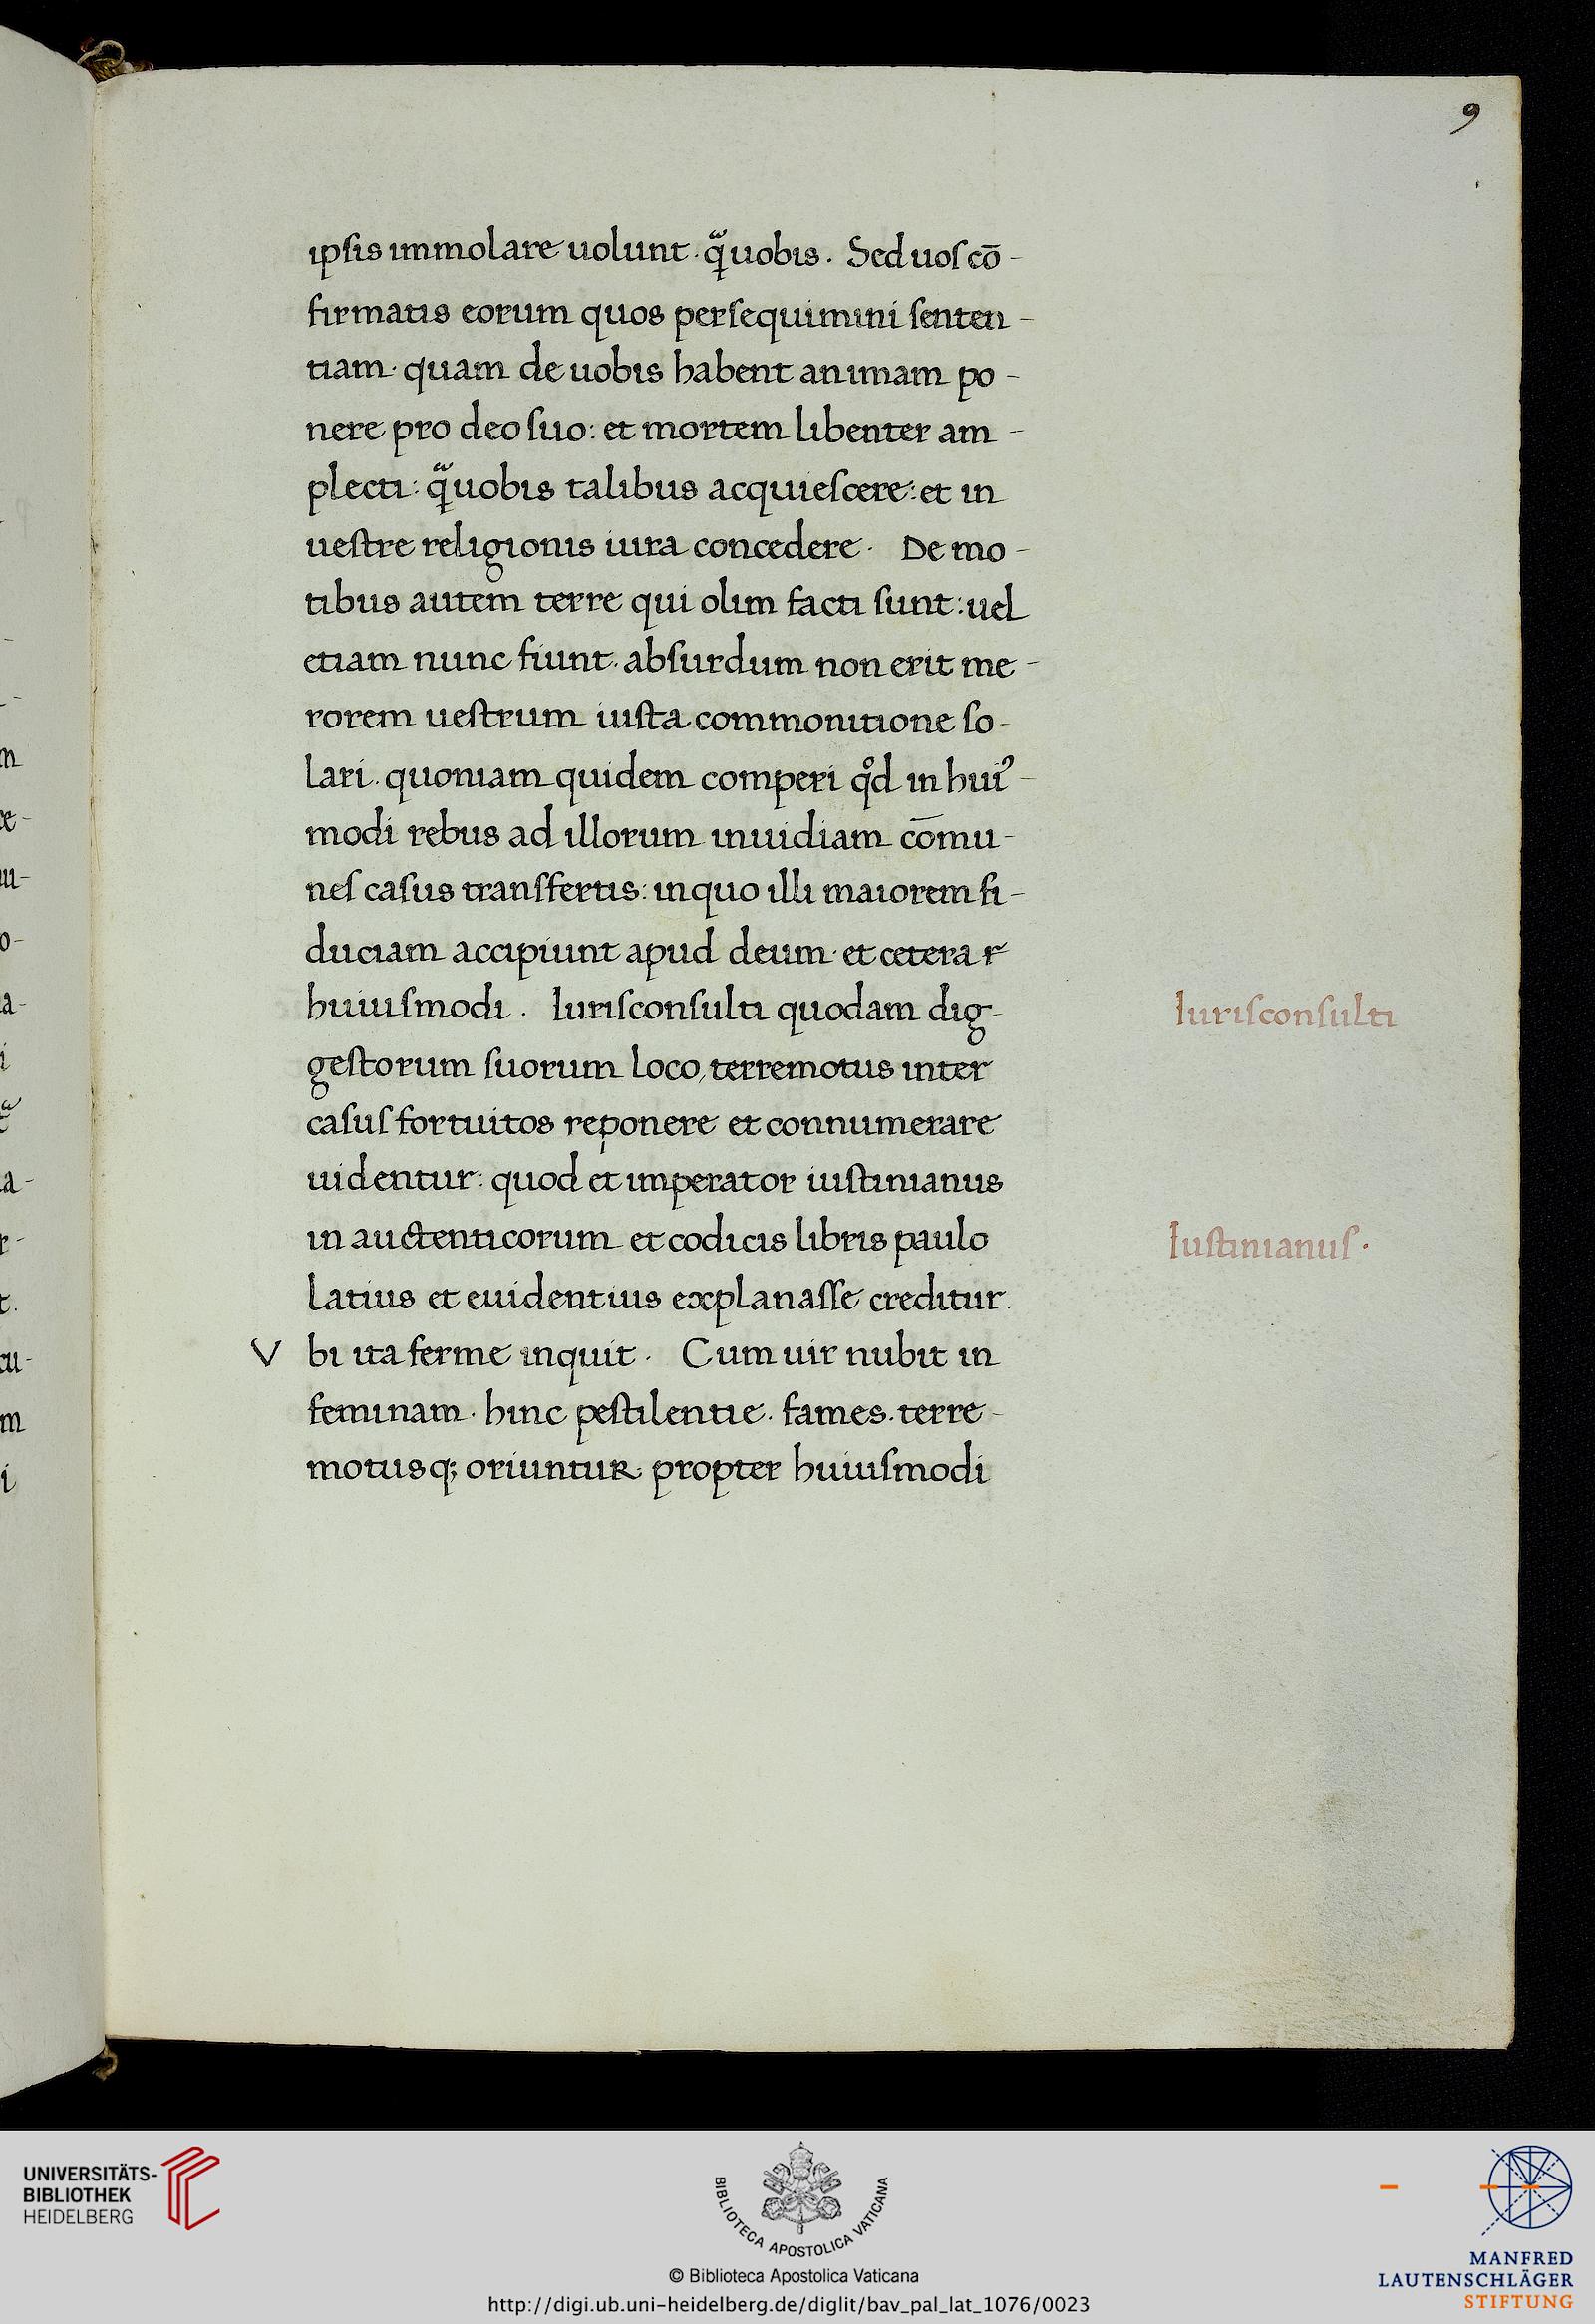 9
ipsis immolare uolunt · qᷓ uobis . Sed uos cō-
firmatis eorum quos persequimini senten-
tiam · quam de uobis habent animam po-
nere pro deo suo : et mortem libenter am-
plecti : qᷓ uobis talibus acquiescere : et in
uestre religionis iura concedere · De mo-
tibus autem terre qui olim facti sunt : uel
etiam nunc fiunt · absurdum non erit me-
rorem uestrum iusta commonitione so-
lari · quoniam quidem comperi qͦd in huiꝰ-
modi rebus ad illorum inuidiam cōmu-
nes casus transfertis : in quo illi maiorem fi-
duciam accipiunt apud deum · et cetera r
huiusmodi . Iurisconsulti quodam dig-
gestorum suorum loco, terremotus inter
casus fortuitos reponere et connumerare
uidentur : quod et imperator iustinianus
in auctenticorum et codicis libris paulo
latius et euidentius explanasse creditur .
V bi ita ferme inquit · Cum uir nubit in
feminam · hinc pestilentie · fames · terre-
motusq; oriuntur · propter huiusmodi
Iurisconsulti
Iustinianus ·
UNIVERSITÄTS-
BIBLIOTHEK
HEIDELBERG
BIBLIOTECA APOSTOLICA VATICANA
© Biblioteca Apostolica Vaticana
http://digi.ub.uni-heidelberg.de/diglit/bav_pal_lat_1076/0023
MANFRED
LAUTENSCHLÄGER
STIFTUNG